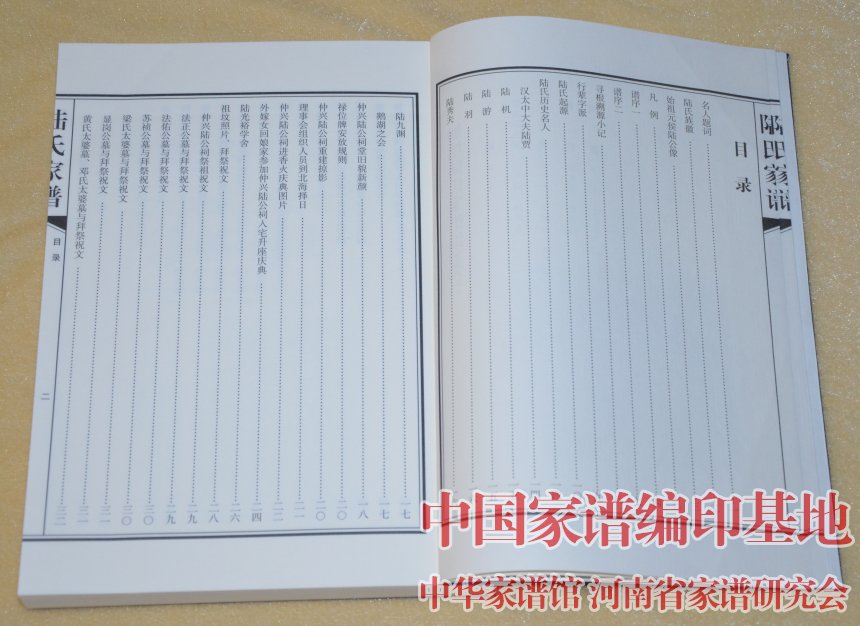 陆氏家谱
目录
名人题词
陆氏族徽
始祖元侯陆公像
凡例
谱序一
谱序二
寻根溯源小记
行辈字派
陆氏起源
陆氏历史名人
汉太中大夫陆贾
陆机
陆游
陆羽
陆秀夫
陆九渊 一七
鹅湖之会 一七
仲兴陆公祠堂旧貌新颜 一八
禄位牌安放规则 二〇
仲兴陆公祠重建掠影 二〇
理事会组织人员到北海择日 二一
仲兴陆公祠进香火庆典图片 二二
外嫁女回娘家参加仲兴陆公祠入宅升座庆典 二四
陆光裕学舍 二六
祖坟照片、拜祭祝文 二八
仲兴陆公祠祭祖祝文 二八
法正公墓与拜祭祝文 二九
法佑公墓与拜祭祝文 二九
苏祯公墓与拜祭祝文 三〇
梁氏太婆墓与拜祭祝文 三〇
显岗公墓与拜祭祝文 三一
黄氏太婆墓、邓氏太婆墓与拜祭祝文 三二
陆氏家谱
目录
二
中国家谱编印基地
中华家谱馆 河南省家谱研究会